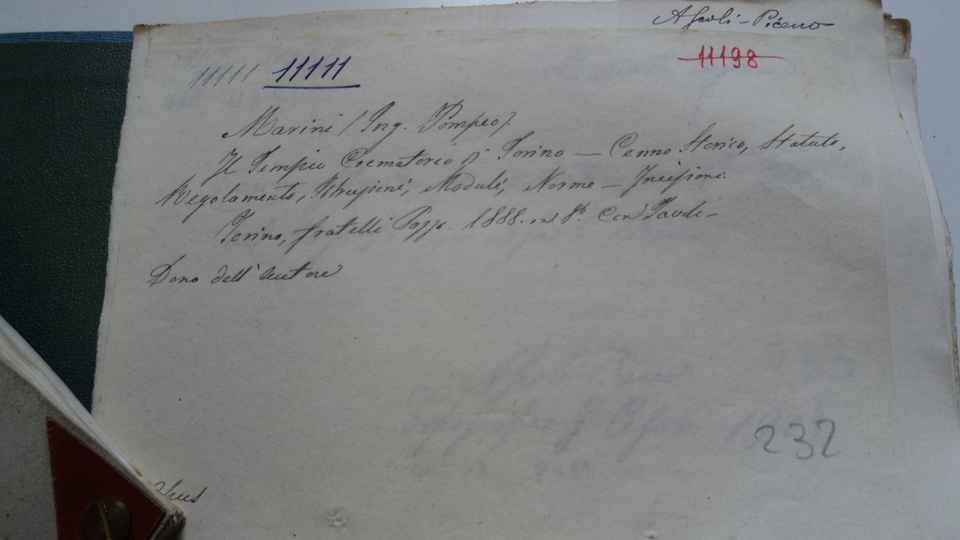 Ascoli-Piceno
11198
11111 11111
Marini (Ing. Pompeo)
Il Tempio Crematorio di Torino — Cenno Storico, Statuto,
Regolamento, Istruzioni, Moduli, Norme — Incisioni
Torino, fratelli Pozzo 1888. in 8º Con Tavole -
Dono dell'autore
232